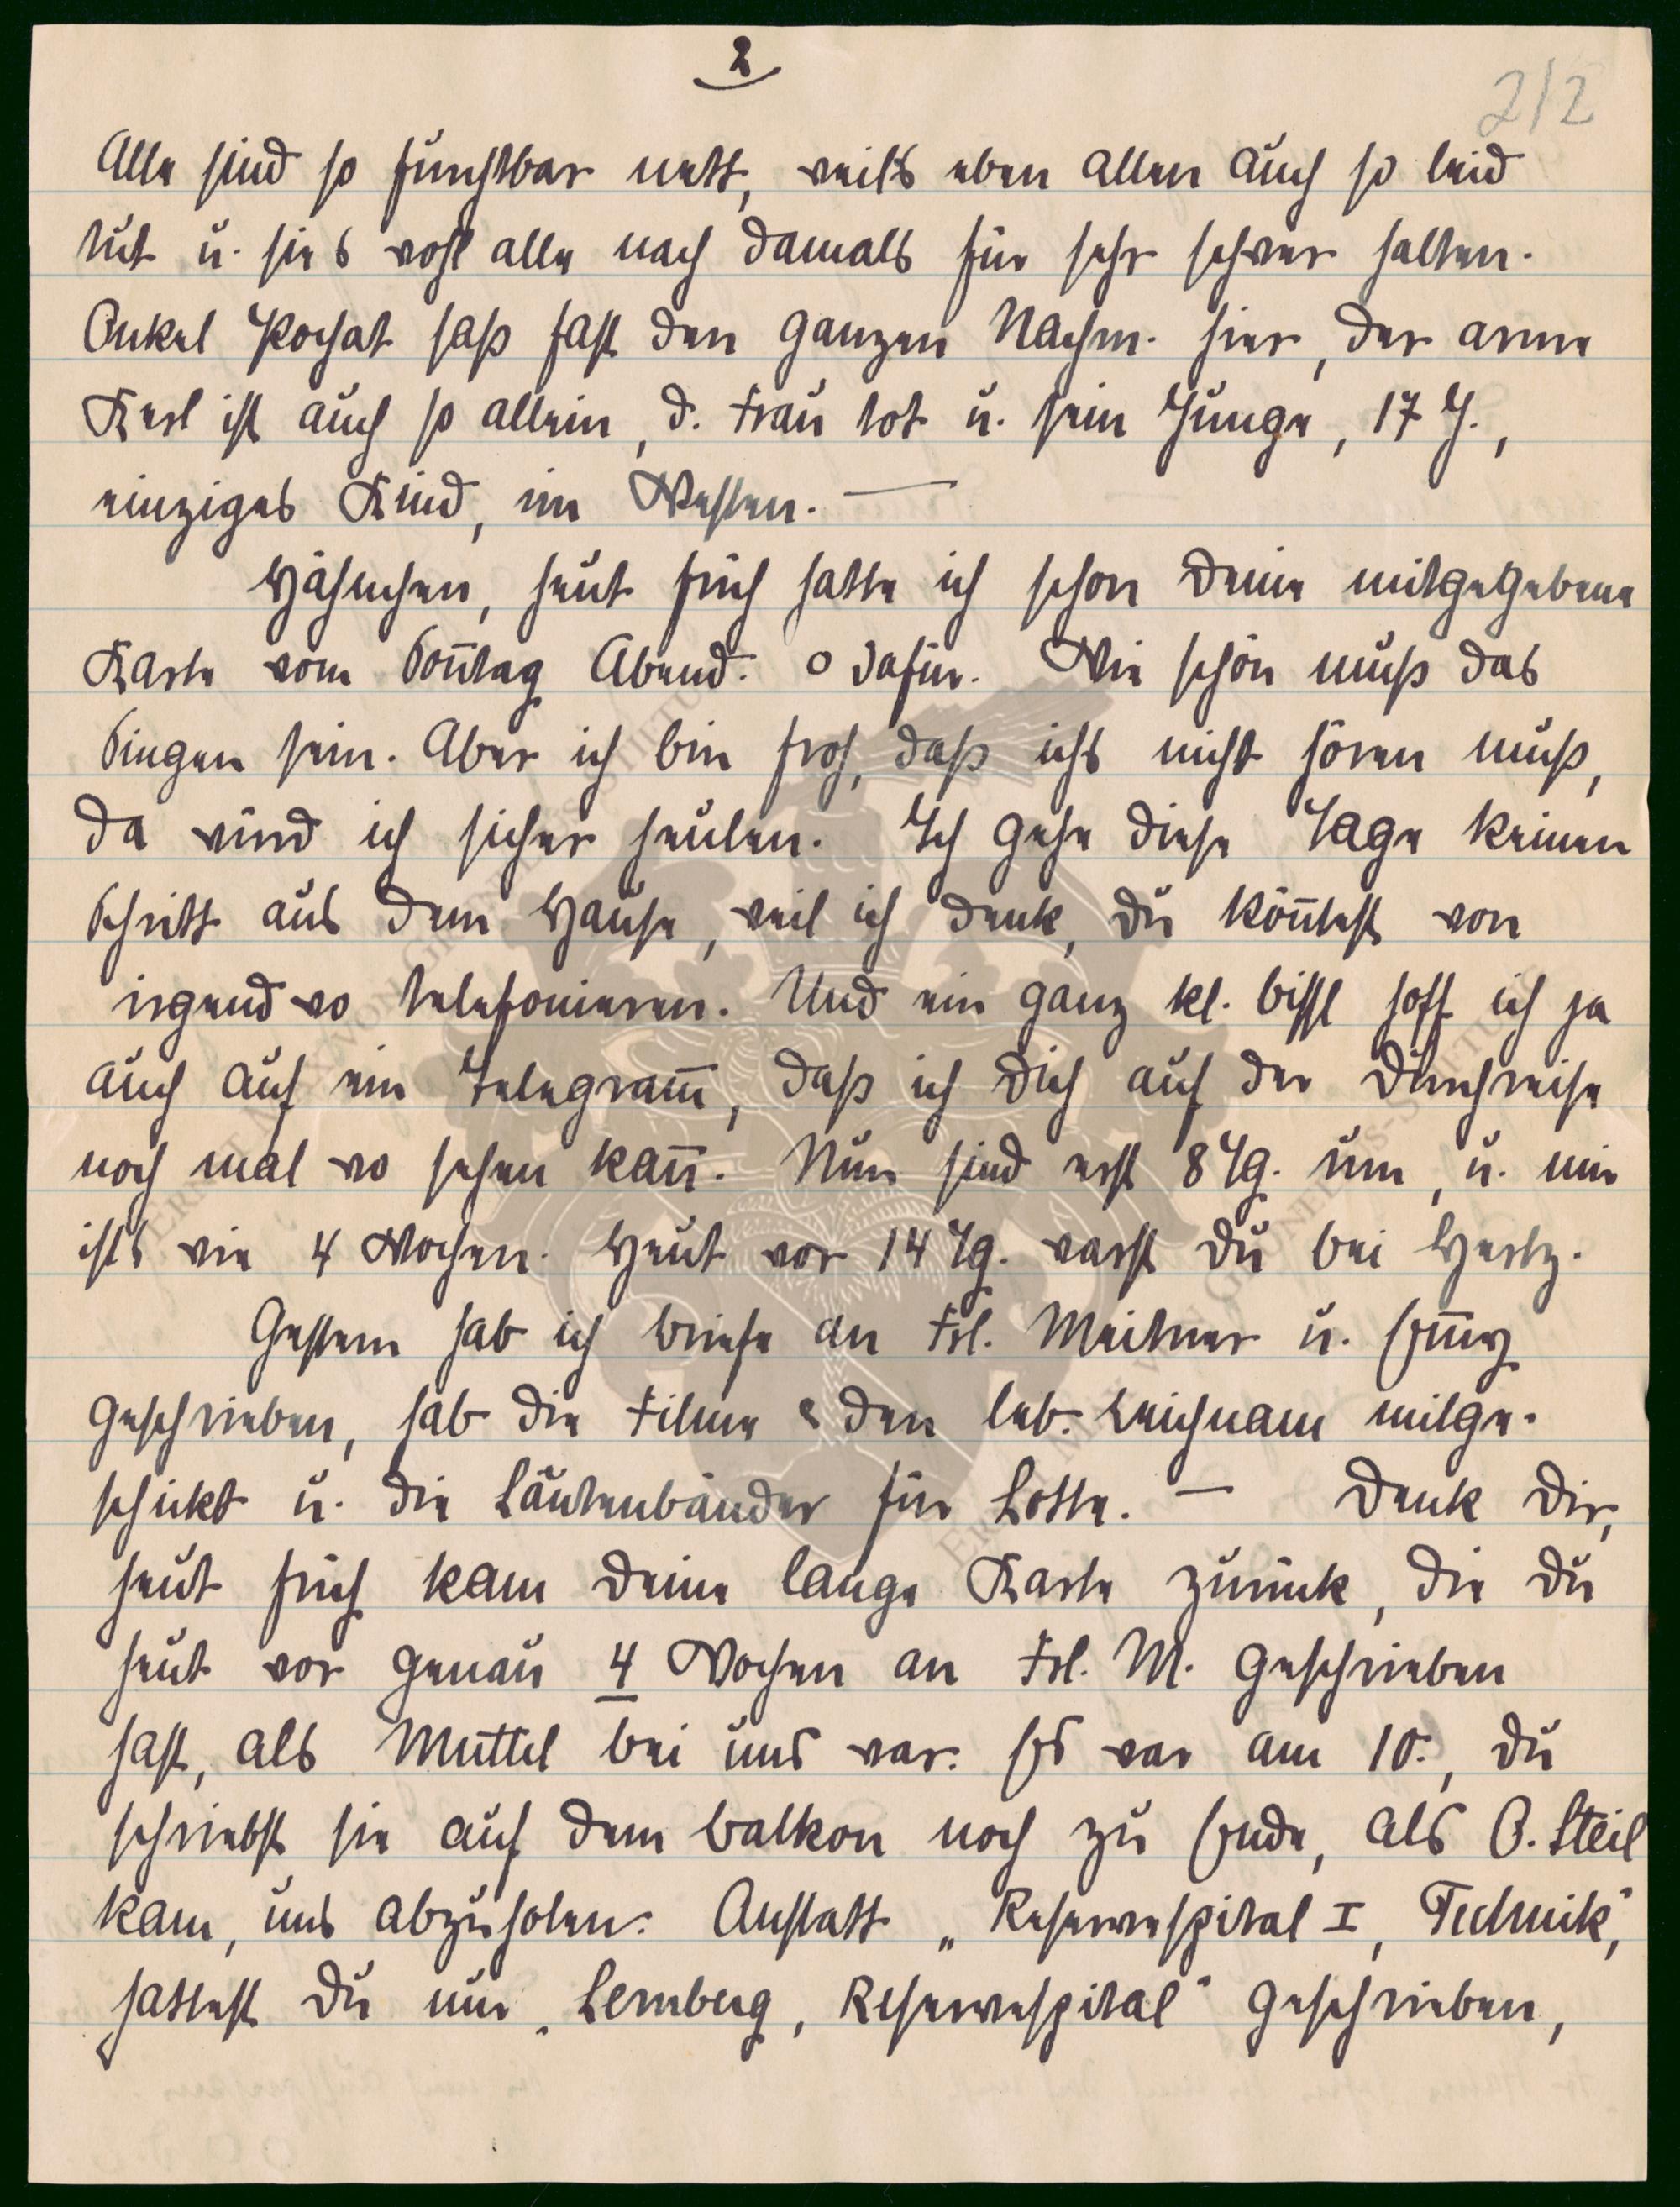 2
2/2
Alle sind so furchtbar nett, weil's eben allen auch so leid
tut u. sie's wohl alle nach damals für sehr schwer halten.
Onkel Kochat saß fast den ganzen Nachm. hier, der arme
Kerl ist auch so allein, d. Frau tot u. sein Junge, 17 J.,
einziges Kind, im Westen. —
Hähnchen, heut früh hatte ich schon Deine mitgegebene
Karte vom Soñtag Abend. o dafür. Wie schön muß das
Singen sein. Aber ich bin froh, daß ichs nicht hören muß,
da würd ich sicher heulen. Ich gehe diese Tage keinen
Schritt aus dem Hause, weil ich denk, Du köñtest von
irgendwo telefonieren. Und ein ganz kl. bissl hoff ich ja
auch auf ein Telegram̄, daß ich Dich auf der Durchreise
noch mal wo sehen kañ. Nun sind erst 8 Tg. um, u. mir
ists wie 4 Wochen. Heut vor 14 Tg. warst Du bei Hertz.
Gestern hab ich Briefe an Frl. Meitner u. Em̄y
geschrieben, hab die Filme & den leb. Leichnam mitge-
schickt u. die Lautenbänder für Lotte. — Denk Dir,
heut früh kam Deine lange Karte zurück, die Du
heut vor genau 4 Wochen an Frl. M. geschrieben
hast, als Muttel bei uns war. Es war am 10., Du
schriebst sie auf dem Balkon noch zu Ende, als O. Steil
kam, uns abzuholen. Anstatt „Reservespital I, Technik",
hattest Du nur „Lemberg, Reservespital" geschrieben,